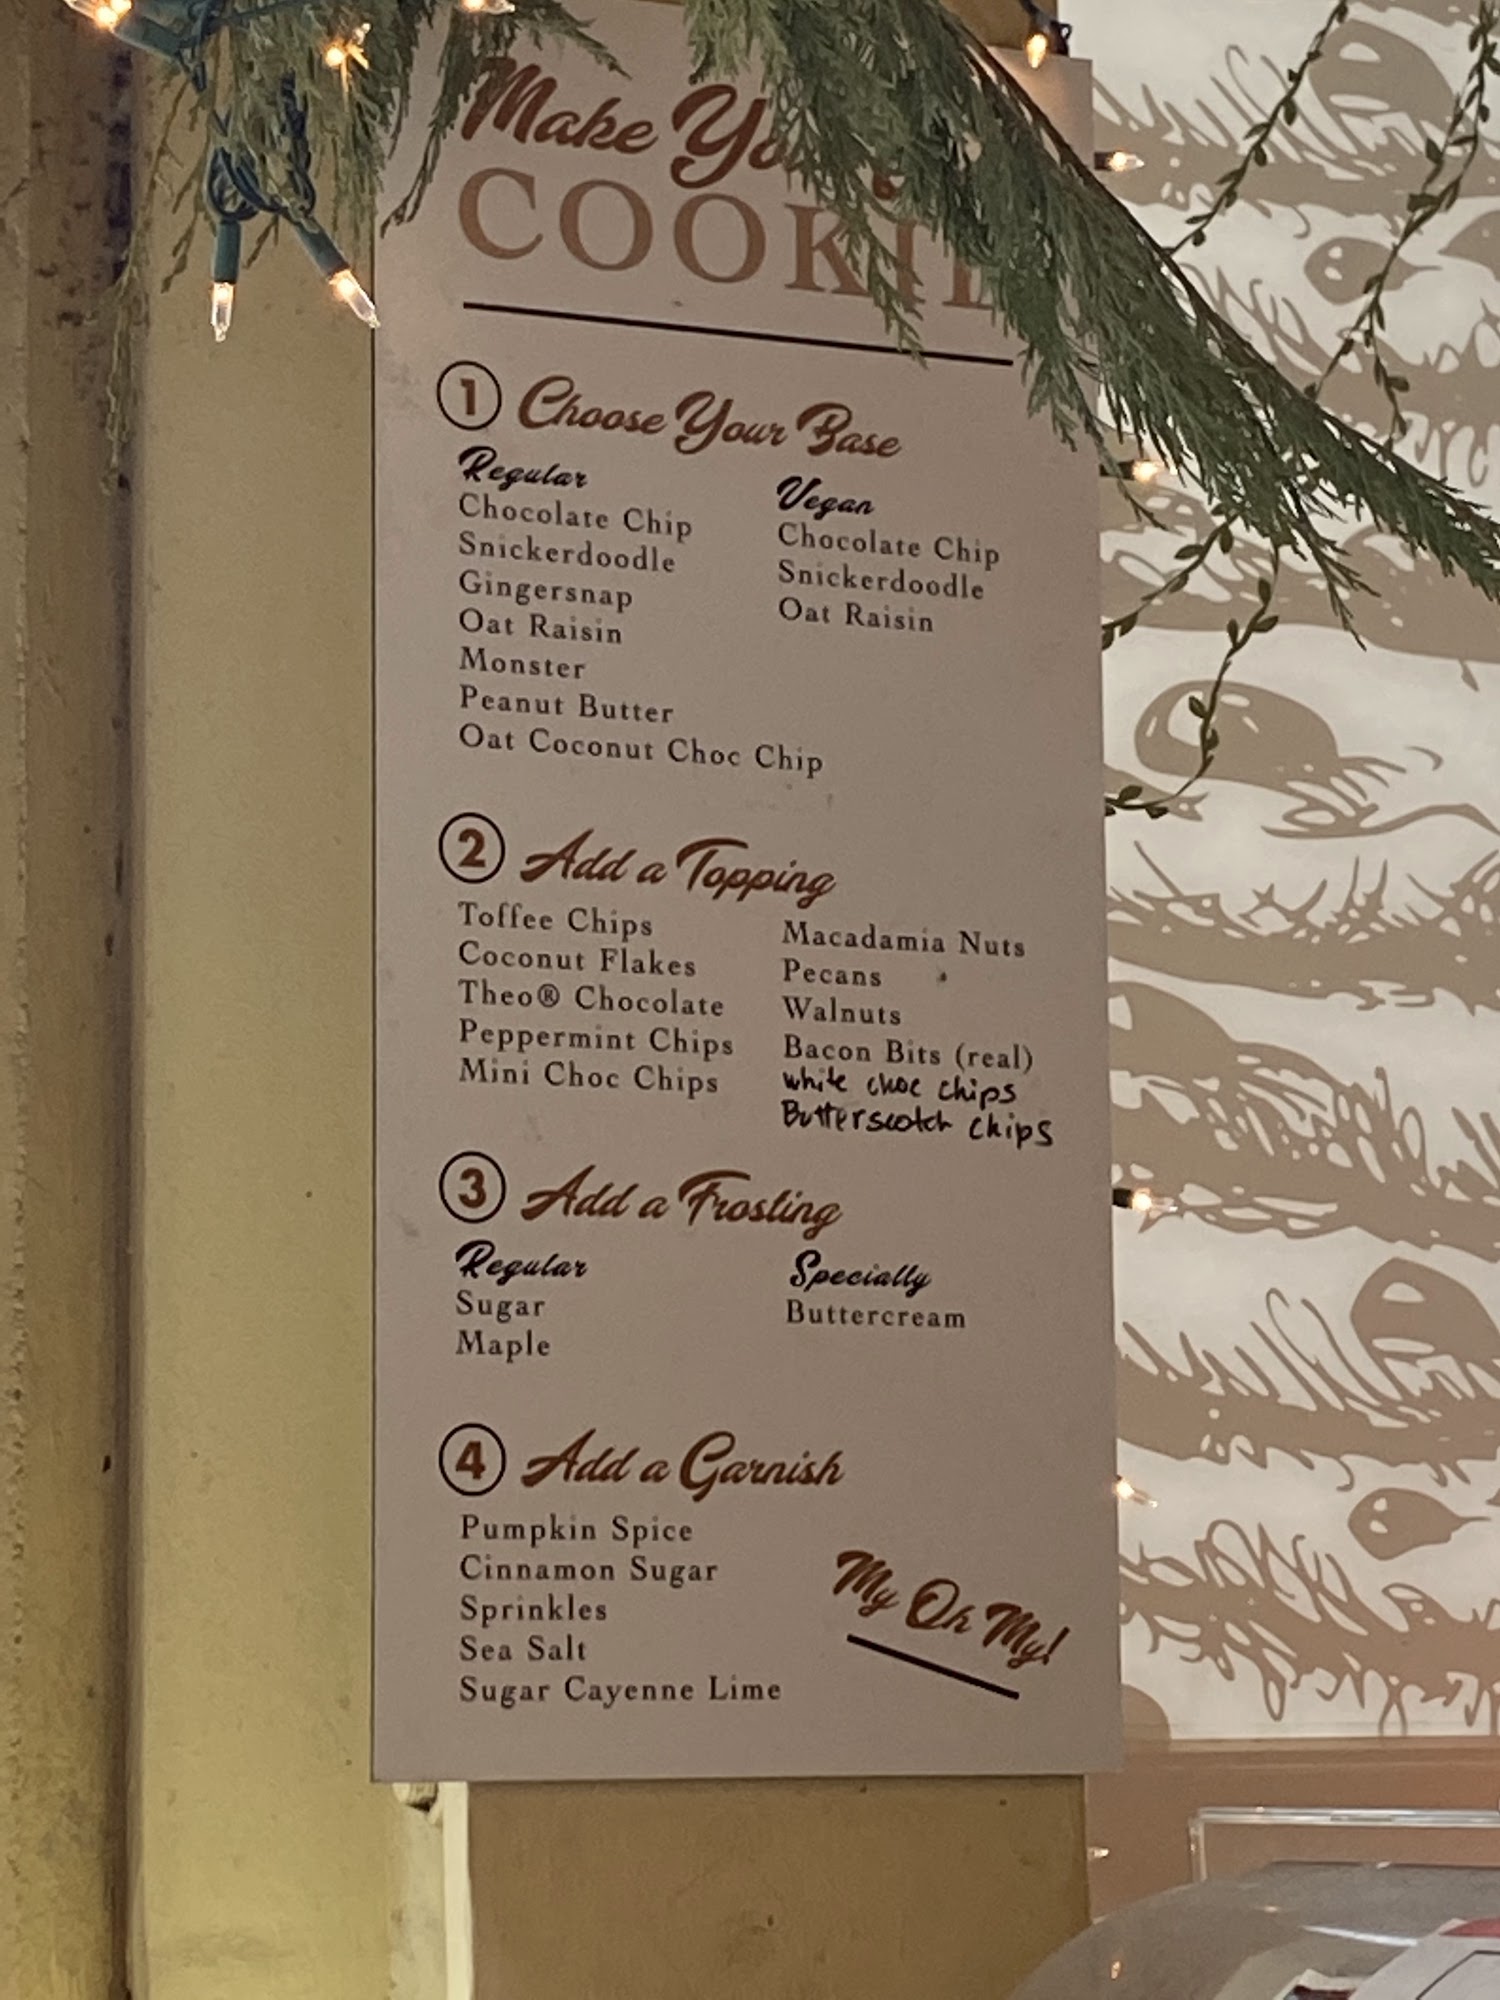 Make
COOKIE
1 Choose Your Base
Regular
Chocolate Chip
Snickerdoodle
Gingersnap
Oat Raisin
Monster
Peanut Butter
Oat Coconut Choc Chip
Vegan
Chocolate Chip
Snickerdoodle
Oat Raisin
2 Add a Topping
Toffee Chips
Coconut Flakes
Theo® Chocolate
Peppermint Chips
Mini Choc Chips
Macadamia Nuts
Pecans
Walnuts
Bacon Bits (real)
white choc chips
Butterscotch chips
3 Add a Frosting
Regular
Sugar
Maple
Specially
Buttercream
4 Add a Garnish
Pumpkin Spice
Cinnamon Sugar
Sprinkles
Sea Salt
Sugar Cayenne Lime
My Oh My!